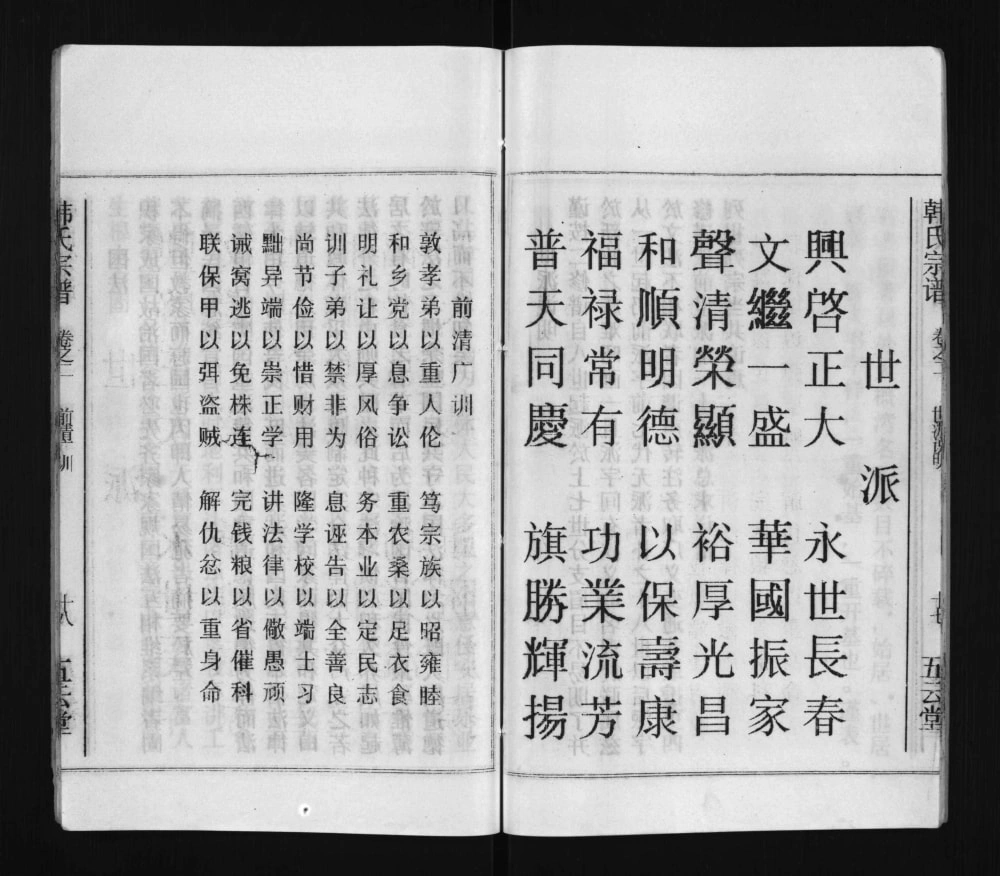 韩氏宗谱 卷之二
五云堂
世派
興啓正大 永世長春
文繼一盛 華國振家
聲清榮顯 裕厚光昌
和順明德 以保壽康
福禄常有 功業流芳
普天同慶 旗勝輝揚
前清广训
敦孝弟以重人伦 笃宗族以昭雍睦
和乡党以息争讼 重农桑以足衣食
明礼让以厚风俗 务本业以定民志
训子弟以禁非为 息诬告以全善良
尚节俭以惜财用 隆学校以端士习
黜异端以崇正学 讲法律以儆愚顽
诫窝逃以免株连 完钱粮以省催科
联保甲以弭盗贼 解仇忿以重身命
韩氏宗谱 卷之二
十八
五云堂